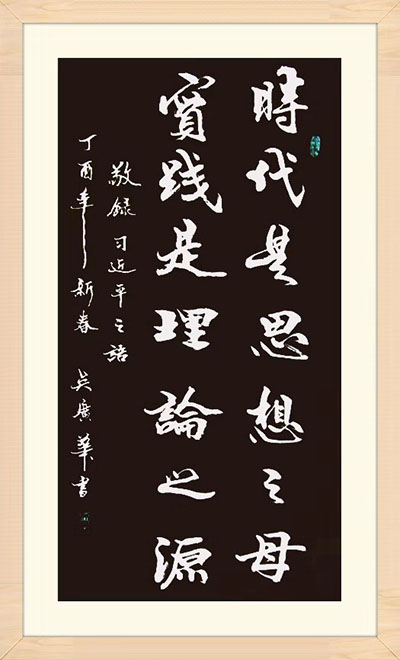 時代是思想之母
實践是理論之源
敬録习近平之語
丁酉年新春 吴廣華書